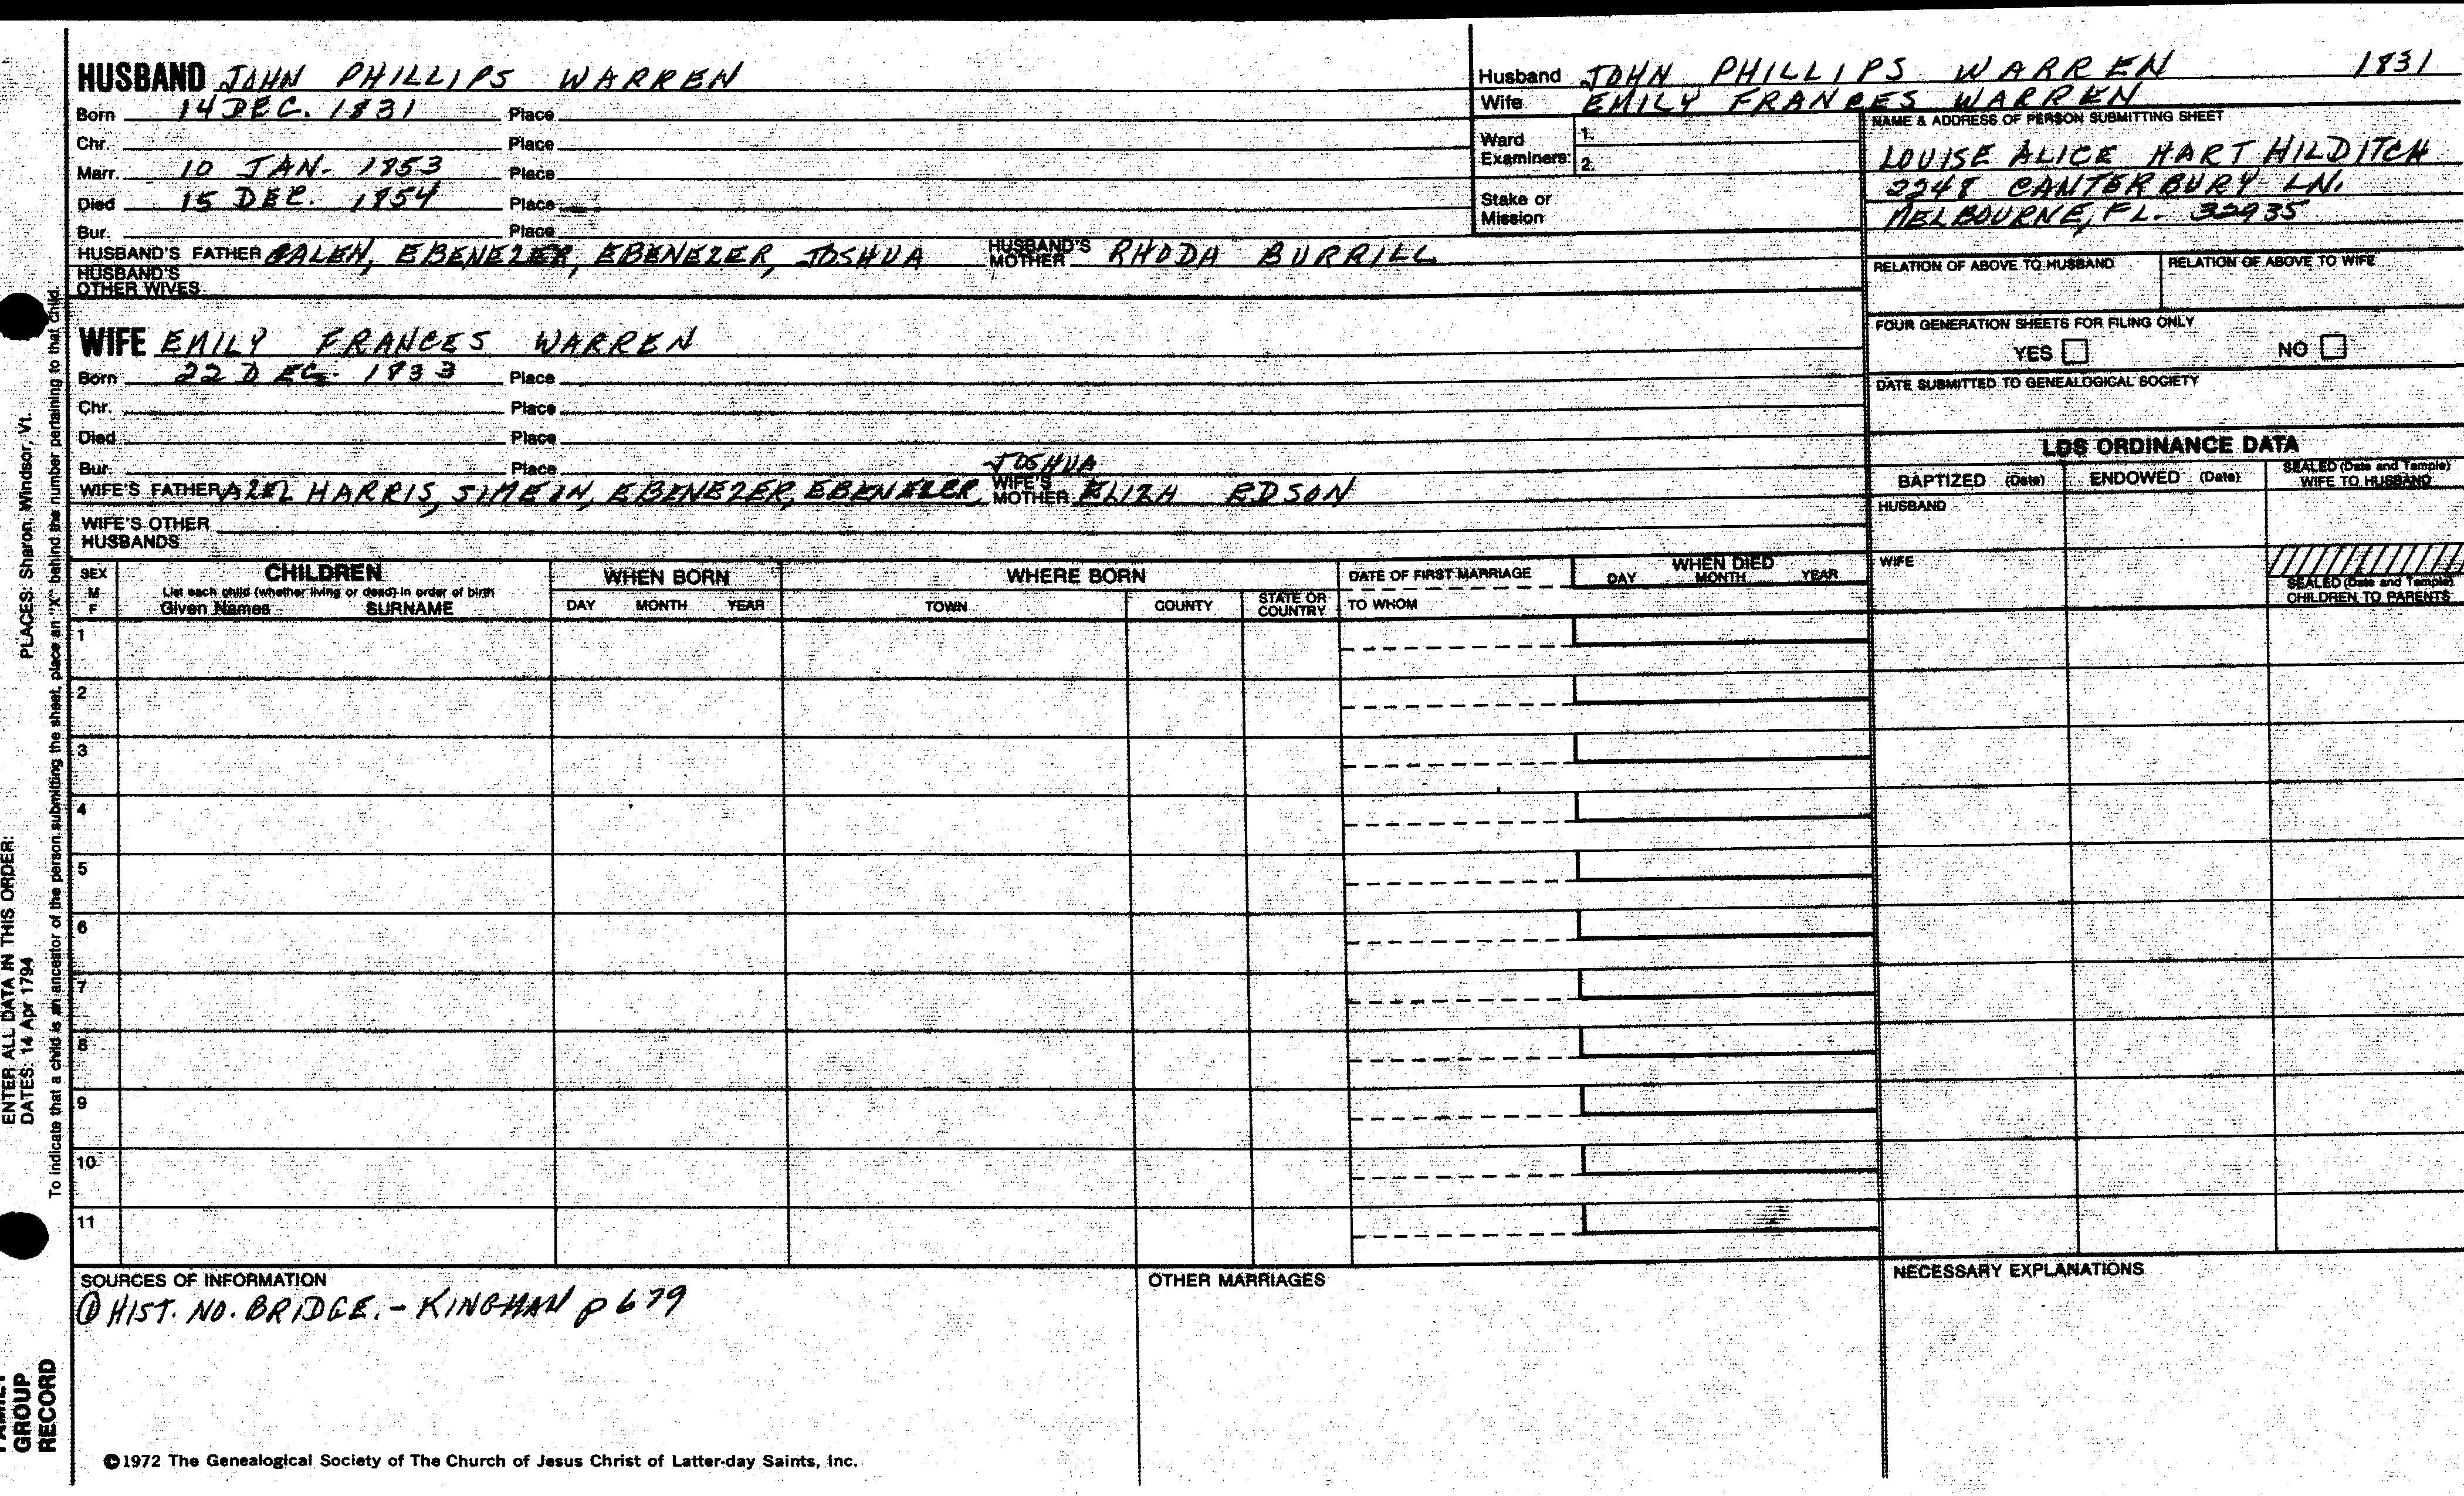 HUSBAND JOHN PHILLIPS WARREN
Born 14 DEC. 1831 Place
Chr. Place
Marr. 10 JAN. 1853 Place
Died 15 DEC. 1854 Place
Bur. Place
HUSBAND'S FATHER GALEN, EBENEZER, EBENEZER, JOSHUA HUSBAND'S MOTHER RHODA BURRILL
HUSBAND'S OTHER WIVES
Husband JOHN PHILLIPS WARREN 1831
Wife EMILY FRANCES WARREN
Ward Examiners: 1.
2.
Stake or Mission
NAME & ADDRESS OF PERSON SUBMITTING SHEET
LOUISE ALICE HART HILDITCH
2248 CANTERBURY LN.
MELBOURNE, FL. 32935
RELATION OF ABOVE TO HUSBAND RELATION OF ABOVE TO WIFE
FOUR GENERATION SHEETS FOR FILING ONLY
YES NO
DATE SUBMITTED TO GENEALOGICAL SOCIETY
WIFE EMILY FRANCES WARREN
Born 22 DEC. 1833 Place
Chr. Place
Died Place
Bur. Place
JOSHUA
WIFE'S FATHER AZEL HARRIS, SIMEON, EBENEZER, EBENEZER, WIFE'S MOTHER ELIZA EDSON
WIFE'S OTHER HUSBANDS
LDS ORDINANCE DATA
BAPTIZED (Date) ENDOWED (Date) SEALED (Date and Temple) WIFE TO HUSBAND
HUSBAND
WIFE
SEALED (Date and Temple) CHILDREN TO PARENTS
SEX M F CHILDREN WHEN BORN WHERE BORN DATE OF FIRST MARRIAGE WHEN DIED
List each child (whether living or dead) in order of birth
Given Names SURNAME DAY MONTH YEAR TOWN COUNTY STATE OR COUNTRY TO WHOM DAY MONTH YEAR
1
2
3
4
5
6
7
8
9
10
11
SOURCES OF INFORMATION OTHER MARRIAGES NECESSARY EXPLANATIONS
① HIST. NO. BRIDGE. - KINGMAN P 679
©1972 The Genealogical Society of The Church of Jesus Christ of Latter-day Saints, Inc.
FAMILY GROUP RECORD
ENTER ALL DATA IN THIS ORDER:
DATES: 14 Apr 1794 PLACES: Sharon, Windsor, Vt.
To indicate that a child is an ancestor of the person submitting the sheet, place an "X" behind the number pertaining to that child.